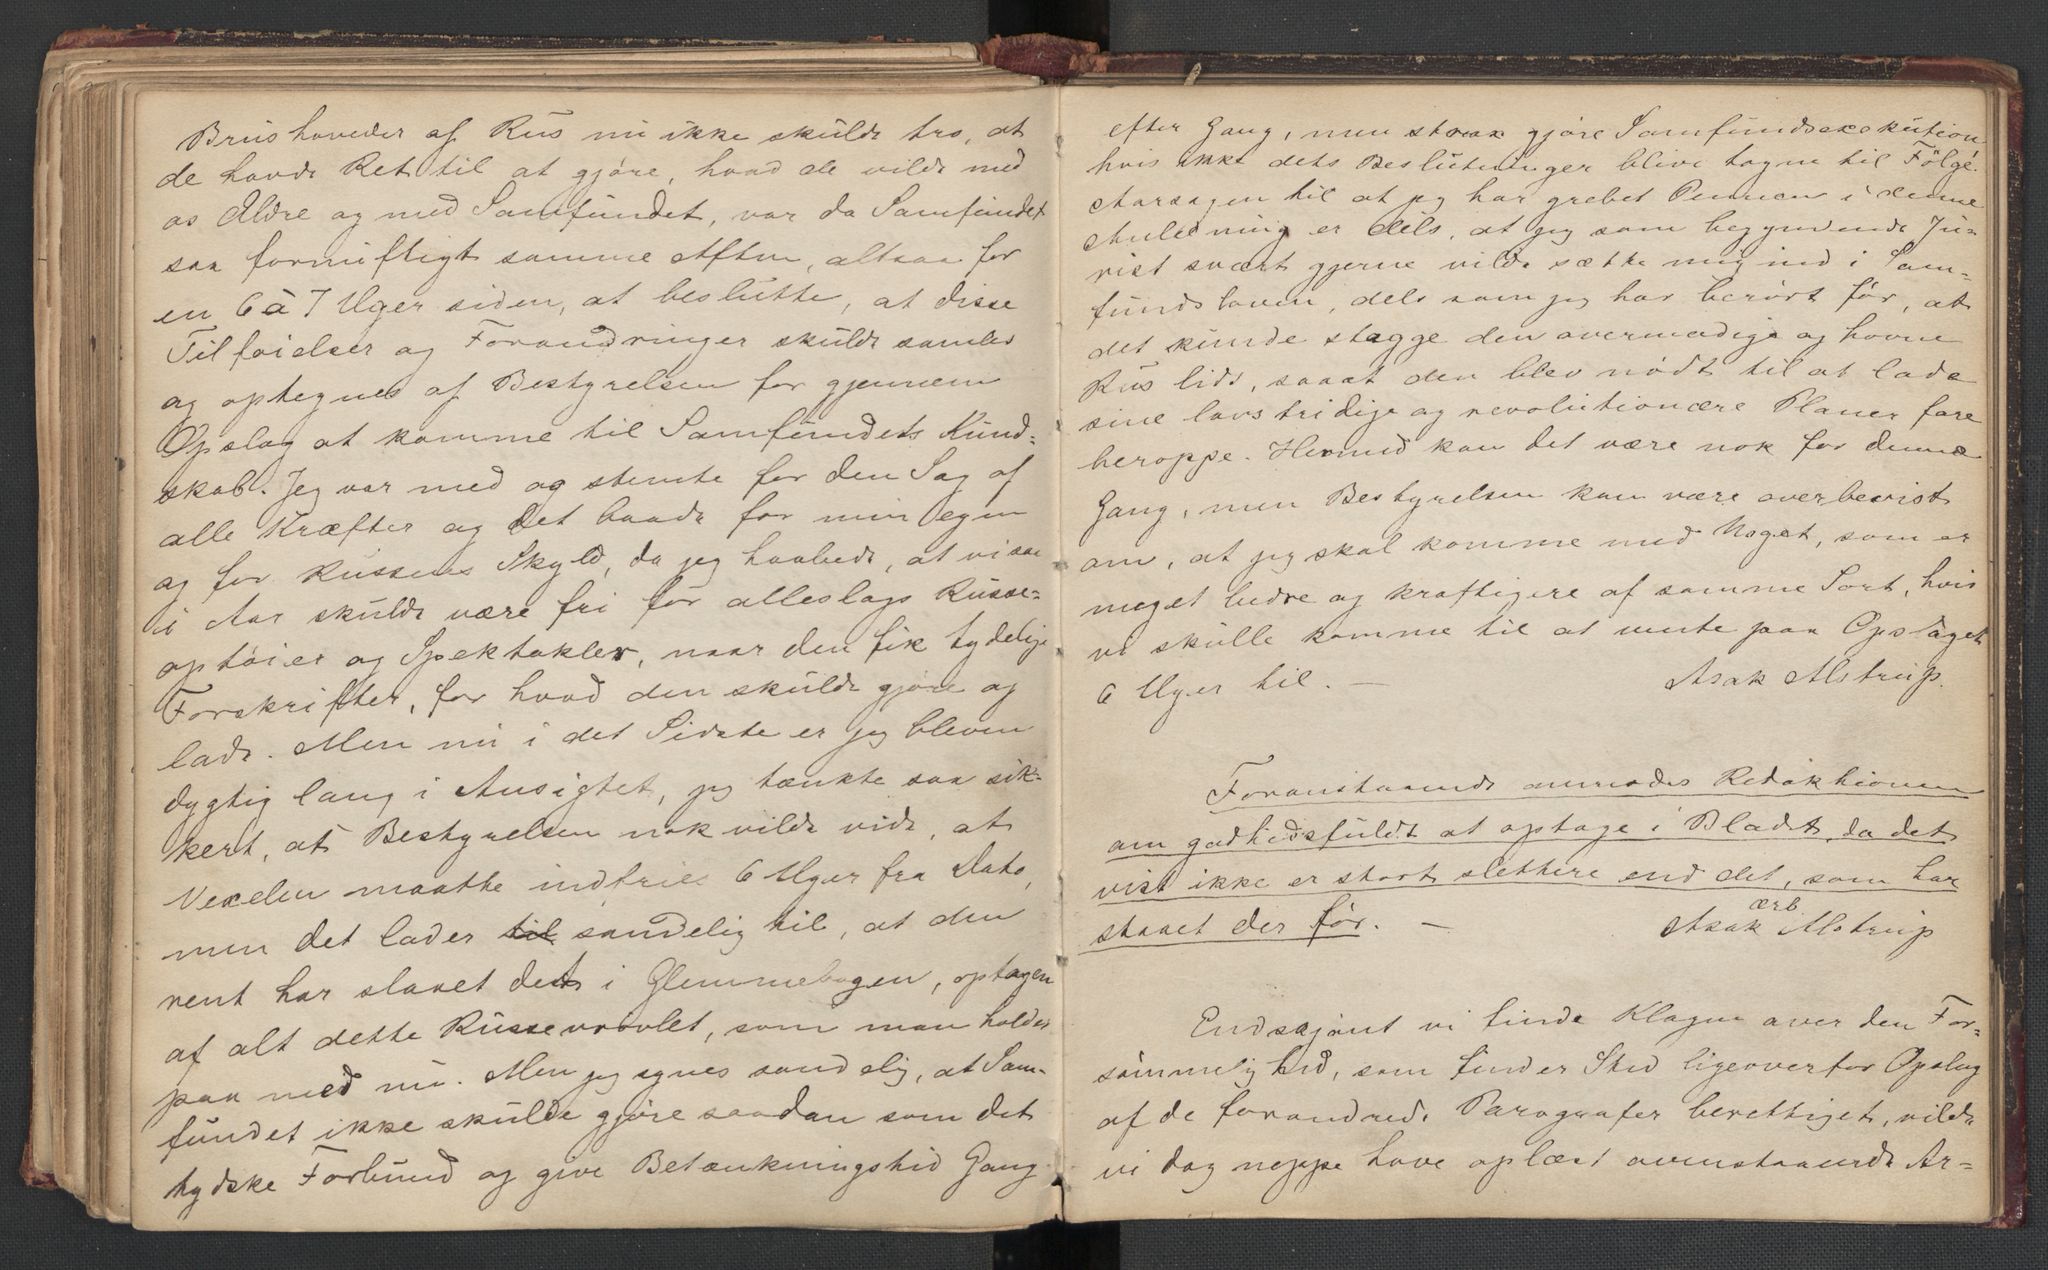 Brushoveder af Rus nu ikke skulde tro, at
de havde Ret til at gjøre, hvad de vilde med
os Ældre og med Samfundet, var da Samfundet
saa fornuftigt samme Aften, altsaa for
en 6 à 7 Uger siden, at beslutte, at disse
Tilføielser og Forandringer skulde samles
og optegnes af Bestyrelsen for gjennem
Opslag at komme til Samfundets Kund-
skab. Jeg var med og stemte for den Sag af
alle Kræfter og det baade for min egen
og for Russens Skyld, da jeg haabede, at vi saa
i Aar skulde være fri for alleslags Russe-
optøier og Spektakler, naar den fik tydelige
Forskrifter, for hvad den skulde gjøre og
lade. Men nu i det Sidste er jeg bleven
dygtig lang i Ansigtet, jeg tænkte saa sik-
kert, at Bestyrelsen nok vilde vide, at
Vexelen maatte indfries 6 Uger fra Dato,
men det lader til sandelig til, at den
rent har slaaet det i Glemmebogen, optagen
af alt dette Russevrøvlet, som man holder
paa med nu. Men jeg synes sandelig, at Sam-
fundet ikke skulde gjøre saadan som det
tydske Forbund og give Betænkningstid Gang
efter Gang, men strax gjøre Samfundsexekution
hvis ikke dets Beslutninger blive tagne til Følge.
Aarsagen til at jeg har grebet Pennen i denne
Anledning er dels, at jeg som begyndende Ju-
rist svært gjerne vilde sætte mig ind i Sam-
fundsloven, dels som jeg har berørt før, at
det kunde stagge den overmodige og hovne
Rus lidt, saaat den blev nødt til at lade
sine lovstridige og revolutionære Planer fare
heroppe. Hermed kan det være nok for denne
Gang, men Bestyrelsen kan være overbevist
om, at jeg skal komme med Noget, som er
meget bedre og kraftigere af samme Sort, hvis
vi skulle komme til at vente paa Opslaget
6 Uger til. —
Asak Alstrup.
Foranstaaende anmodes Redaktionen
om godhedsfuldt at optage i Bladet, da det
vist ikke er stort slettere end det, som har
staaet der før. —
ærb
Asak Alstrup
Endskjønt vi finde Klagen over den For-
sømmelighed, som finder Sted ligeoverfor Opslag
af de forandrede Paragrafer berettiget, vilde
vi dog neppe have oplæst ovenstaaende Ar-